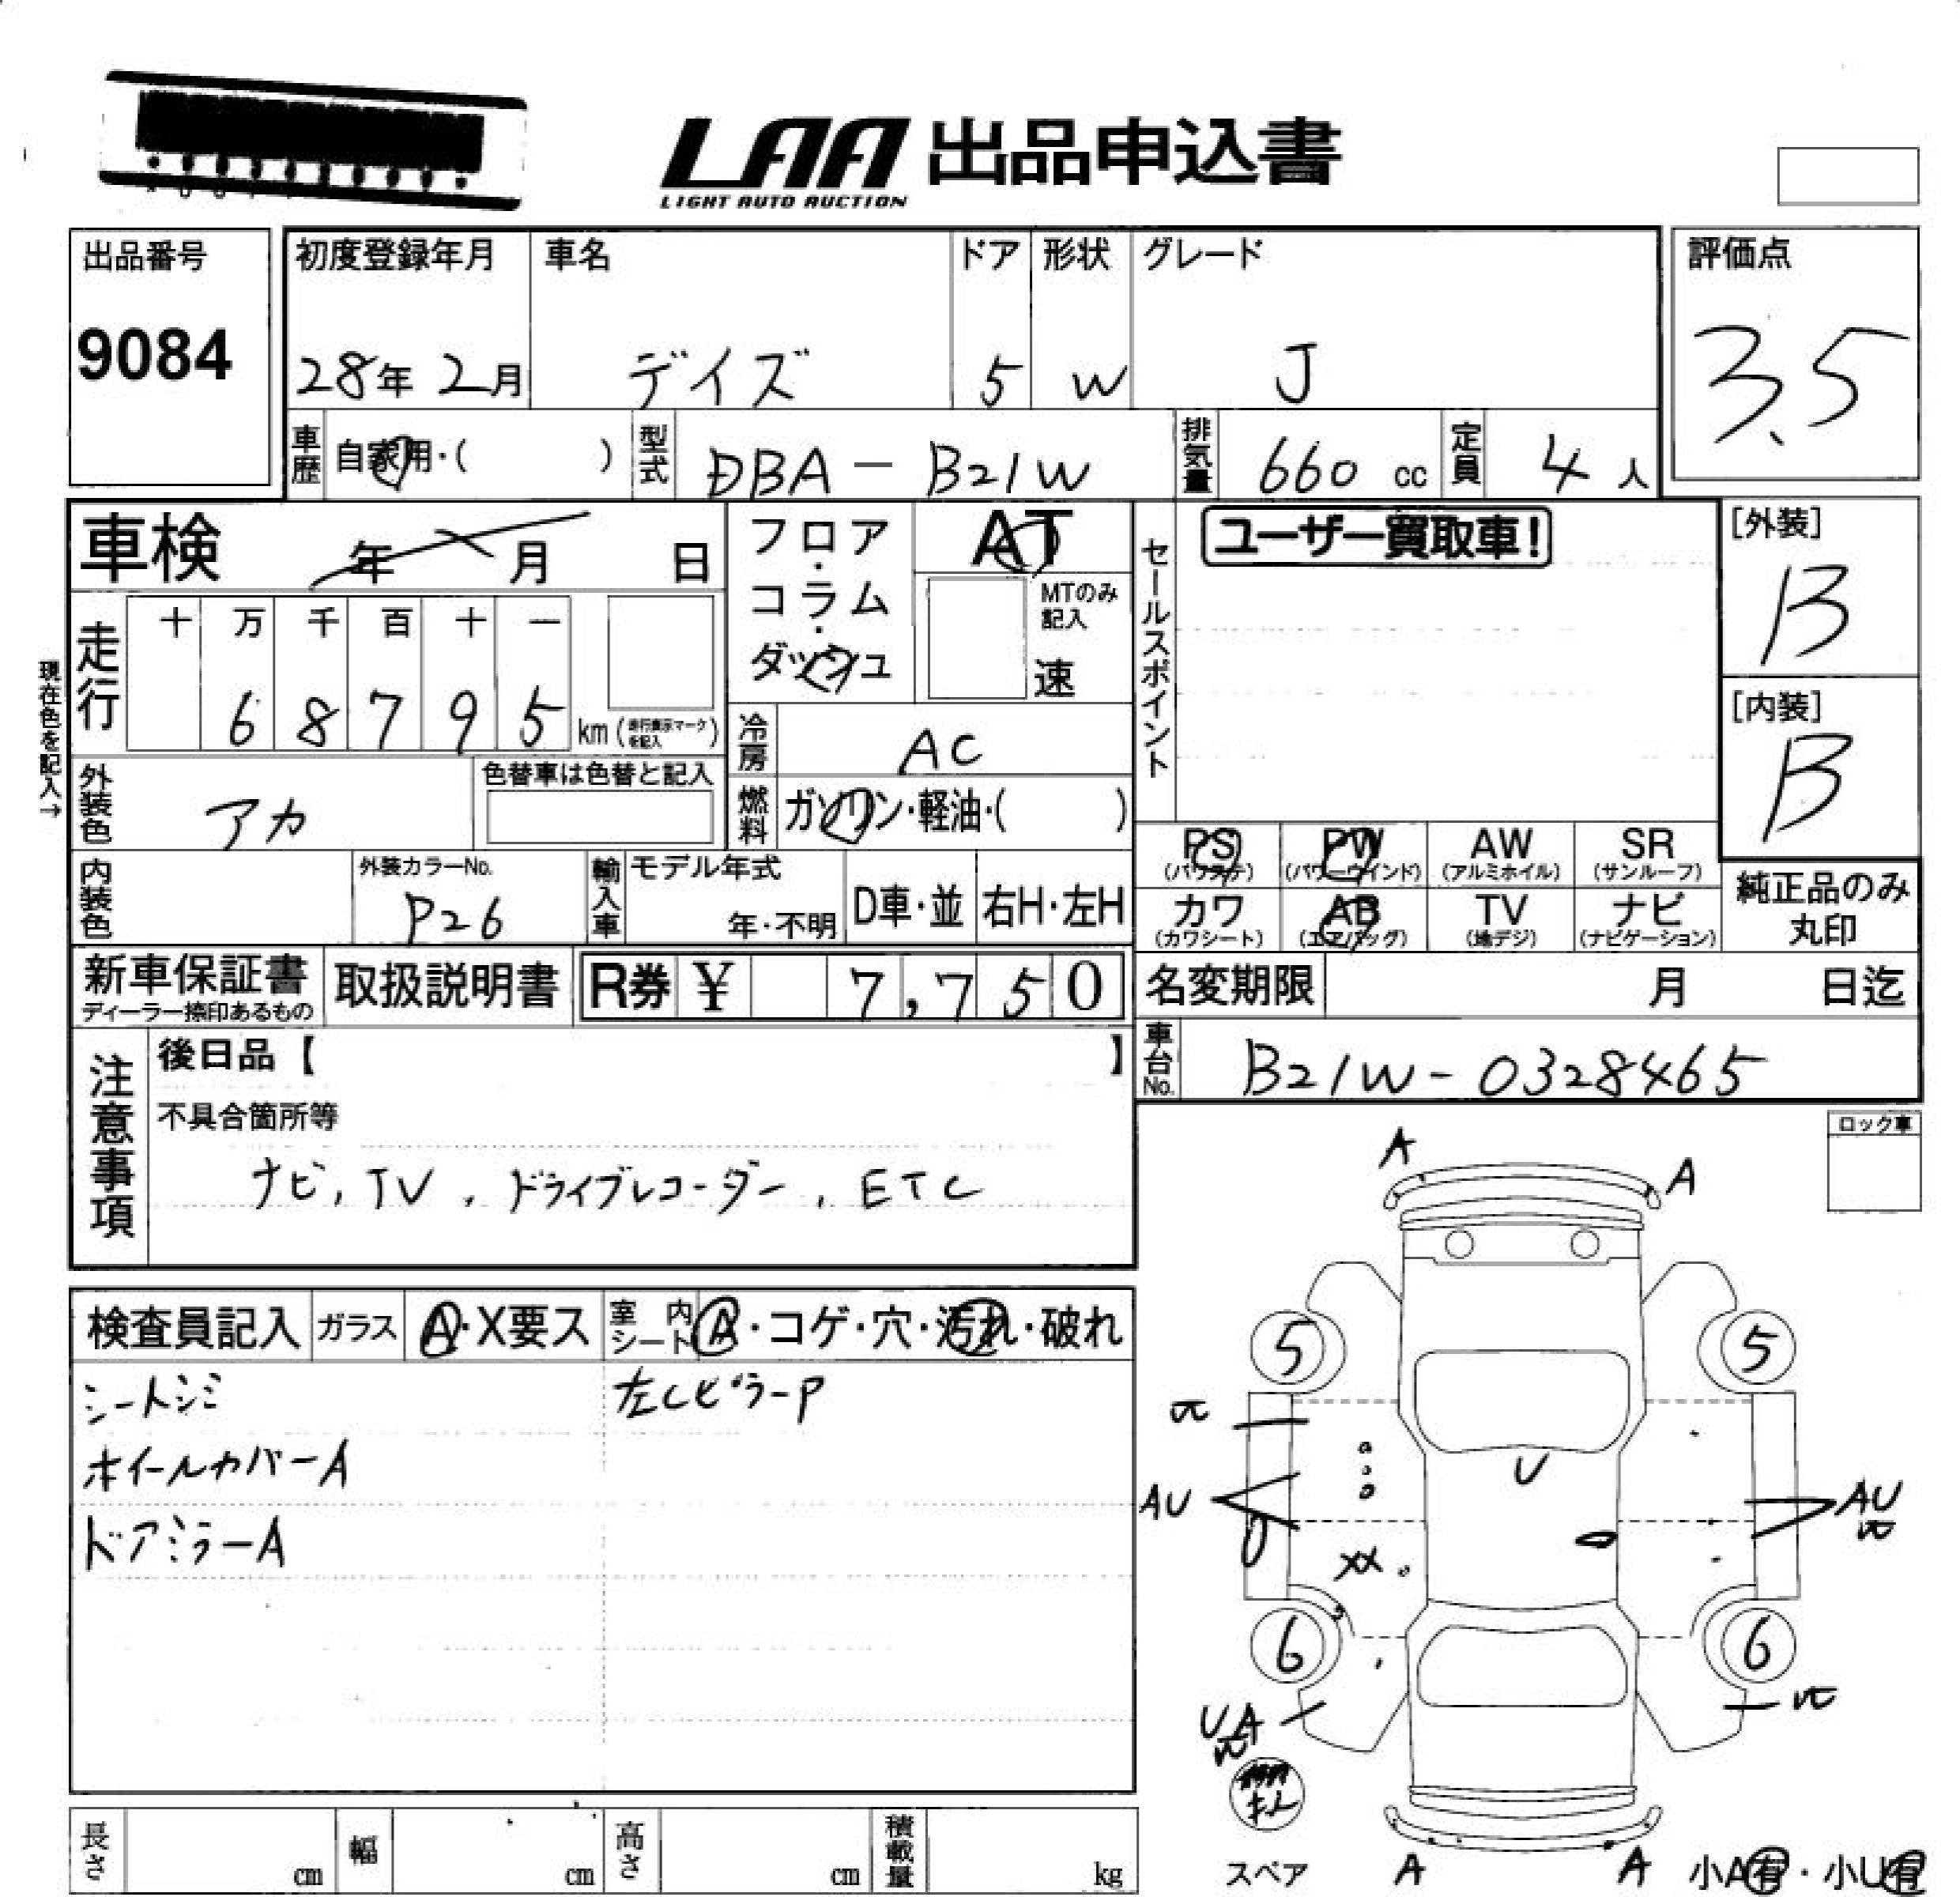 LAA 出品申込書
LIGHT AUTO AUCTION
出品番号
9084
初度登録年月
28年 2月
車名
デイズ
ドア
5
形状
W
グレード
J
評価点
3.5
車歴
自家用・( )
型式
DBA - B21W
排気量
660 cc
定員
4 人
車検 年 月 日
フロア・コラム・ダッシュ
AT
MTのみ記入
速
セールスポイント
ユーザー買取車!
[外装]
B
[内装]
B
現在色を記入→
走行
十 万 千 百 十 一
6 8 7 9 5 km (走行表示マークを記入)
冷房
AC
外装色
アカ
色替車は色替と記入
燃料
ガソリン・軽油・( )
PS (パワステ)
PW (パワーウインド)
AW (アルミホイル)
SR (サンルーフ)
カワ (カワシート)
AB (エアバッグ)
TV (地デジ)
ナビ (ナビゲーション)
純正品のみ
丸印
内装色
外装カラーNo.
P26
輸入車
モデル年式
年・不明
D車・並
右H・左H
新車保証書
ディーラー捺印あるもの
取扱説明書
R券 ¥ 7,750
名変期限 月 日迄
車台No.
B21W-0328465
注意事項
後日品【 】
不具合箇所等
ナビ, TV, ドライブレコーダー, ETC
ロック車
検査員記入
ガラス
A・X要ス
室内シート
A・コゲ・穴・汚れ・破れ
シートシミ
左Cピラーp
ホイールカバーA
ドアミラーA
A
A
5
5
AU
U
AU
XX
6
6
UA
スペア
A
A
小A有・小U有
長さ cm
幅 cm
高さ cm
積載量 kg